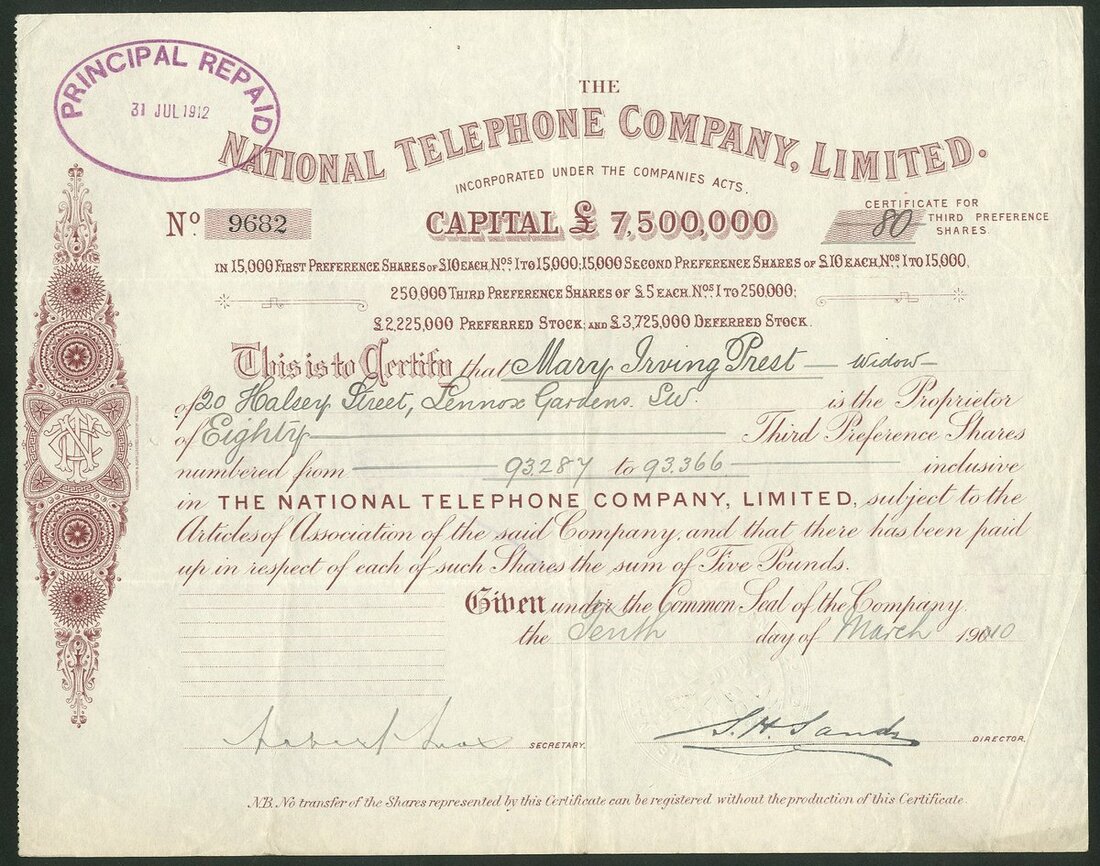 PRINCIPAL REPAID
31 JUL 1912
THE
NATIONAL TELEPHONE COMPANY, LIMITED.
INCORPORATED UNDER THE COMPANIES ACTS.
Nº 9682
CAPITAL £ 7,500,000
CERTIFICATE FOR
80 THIRD PREFERENCE
SHARES.
IN 15,000 FIRST PREFERENCE SHARES OF £10 EACH, NOS 1 TO 15,000; 15,000 SECOND PREFERENCE SHARES OF £10 EACH, NOS 1 TO 15,000,
250,000 THIRD PREFERENCE SHARES OF £5 EACH, NOS. 1 TO 250,000;
£2,225,000 PREFERRED STOCK; AND £3,725,000 DEFERRED STOCK.
This is to Certify that Mary Irving Prest — Widow —
of 20 Halsey Street, Lennox Gardens. SW. is the Proprietor
of Eighty Third Preference Shares
numbered from 93.287 to 93.366 inclusive
in THE NATIONAL TELEPHONE COMPANY, LIMITED, subject to the
Articles of Association of the said Company, and that there has been paid
up in respect of each of such Shares the sum of Five Pounds.
Given under the Common Seal of the Company
the Tenth day of March 1910
SECRETARY.
S. H. Sands DIRECTOR.
N.B. No transfer of the Shares represented by this Certificate can be registered without the production of this Certificate.